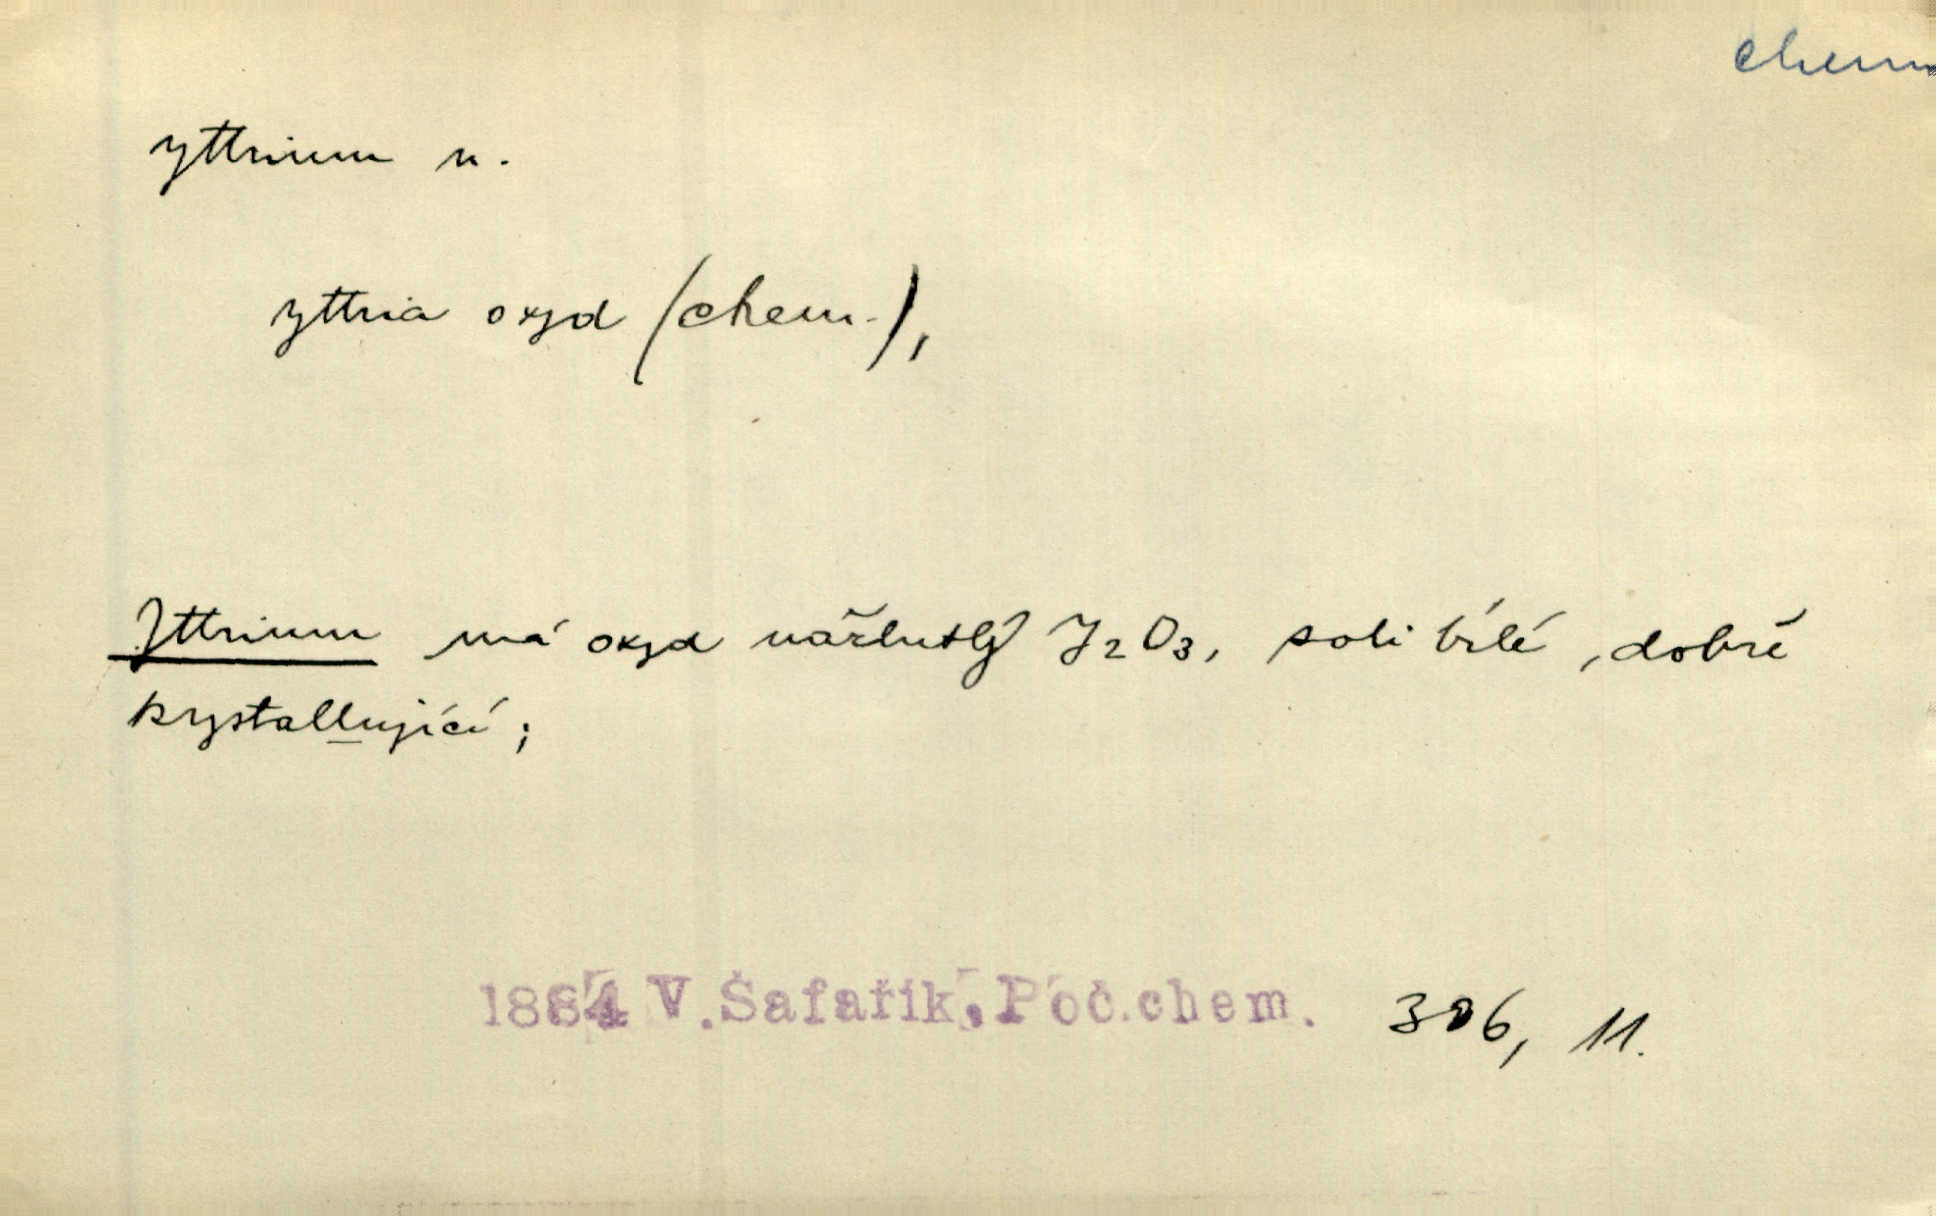 chem
yttrium n.
yttria oxyd (chem.),
Yttrium má oxyd nažlutlý Y₂O₃, soli bílé, dobře
krystallující;
1884 V. Šafařík. Poč.chem. 306, 11.